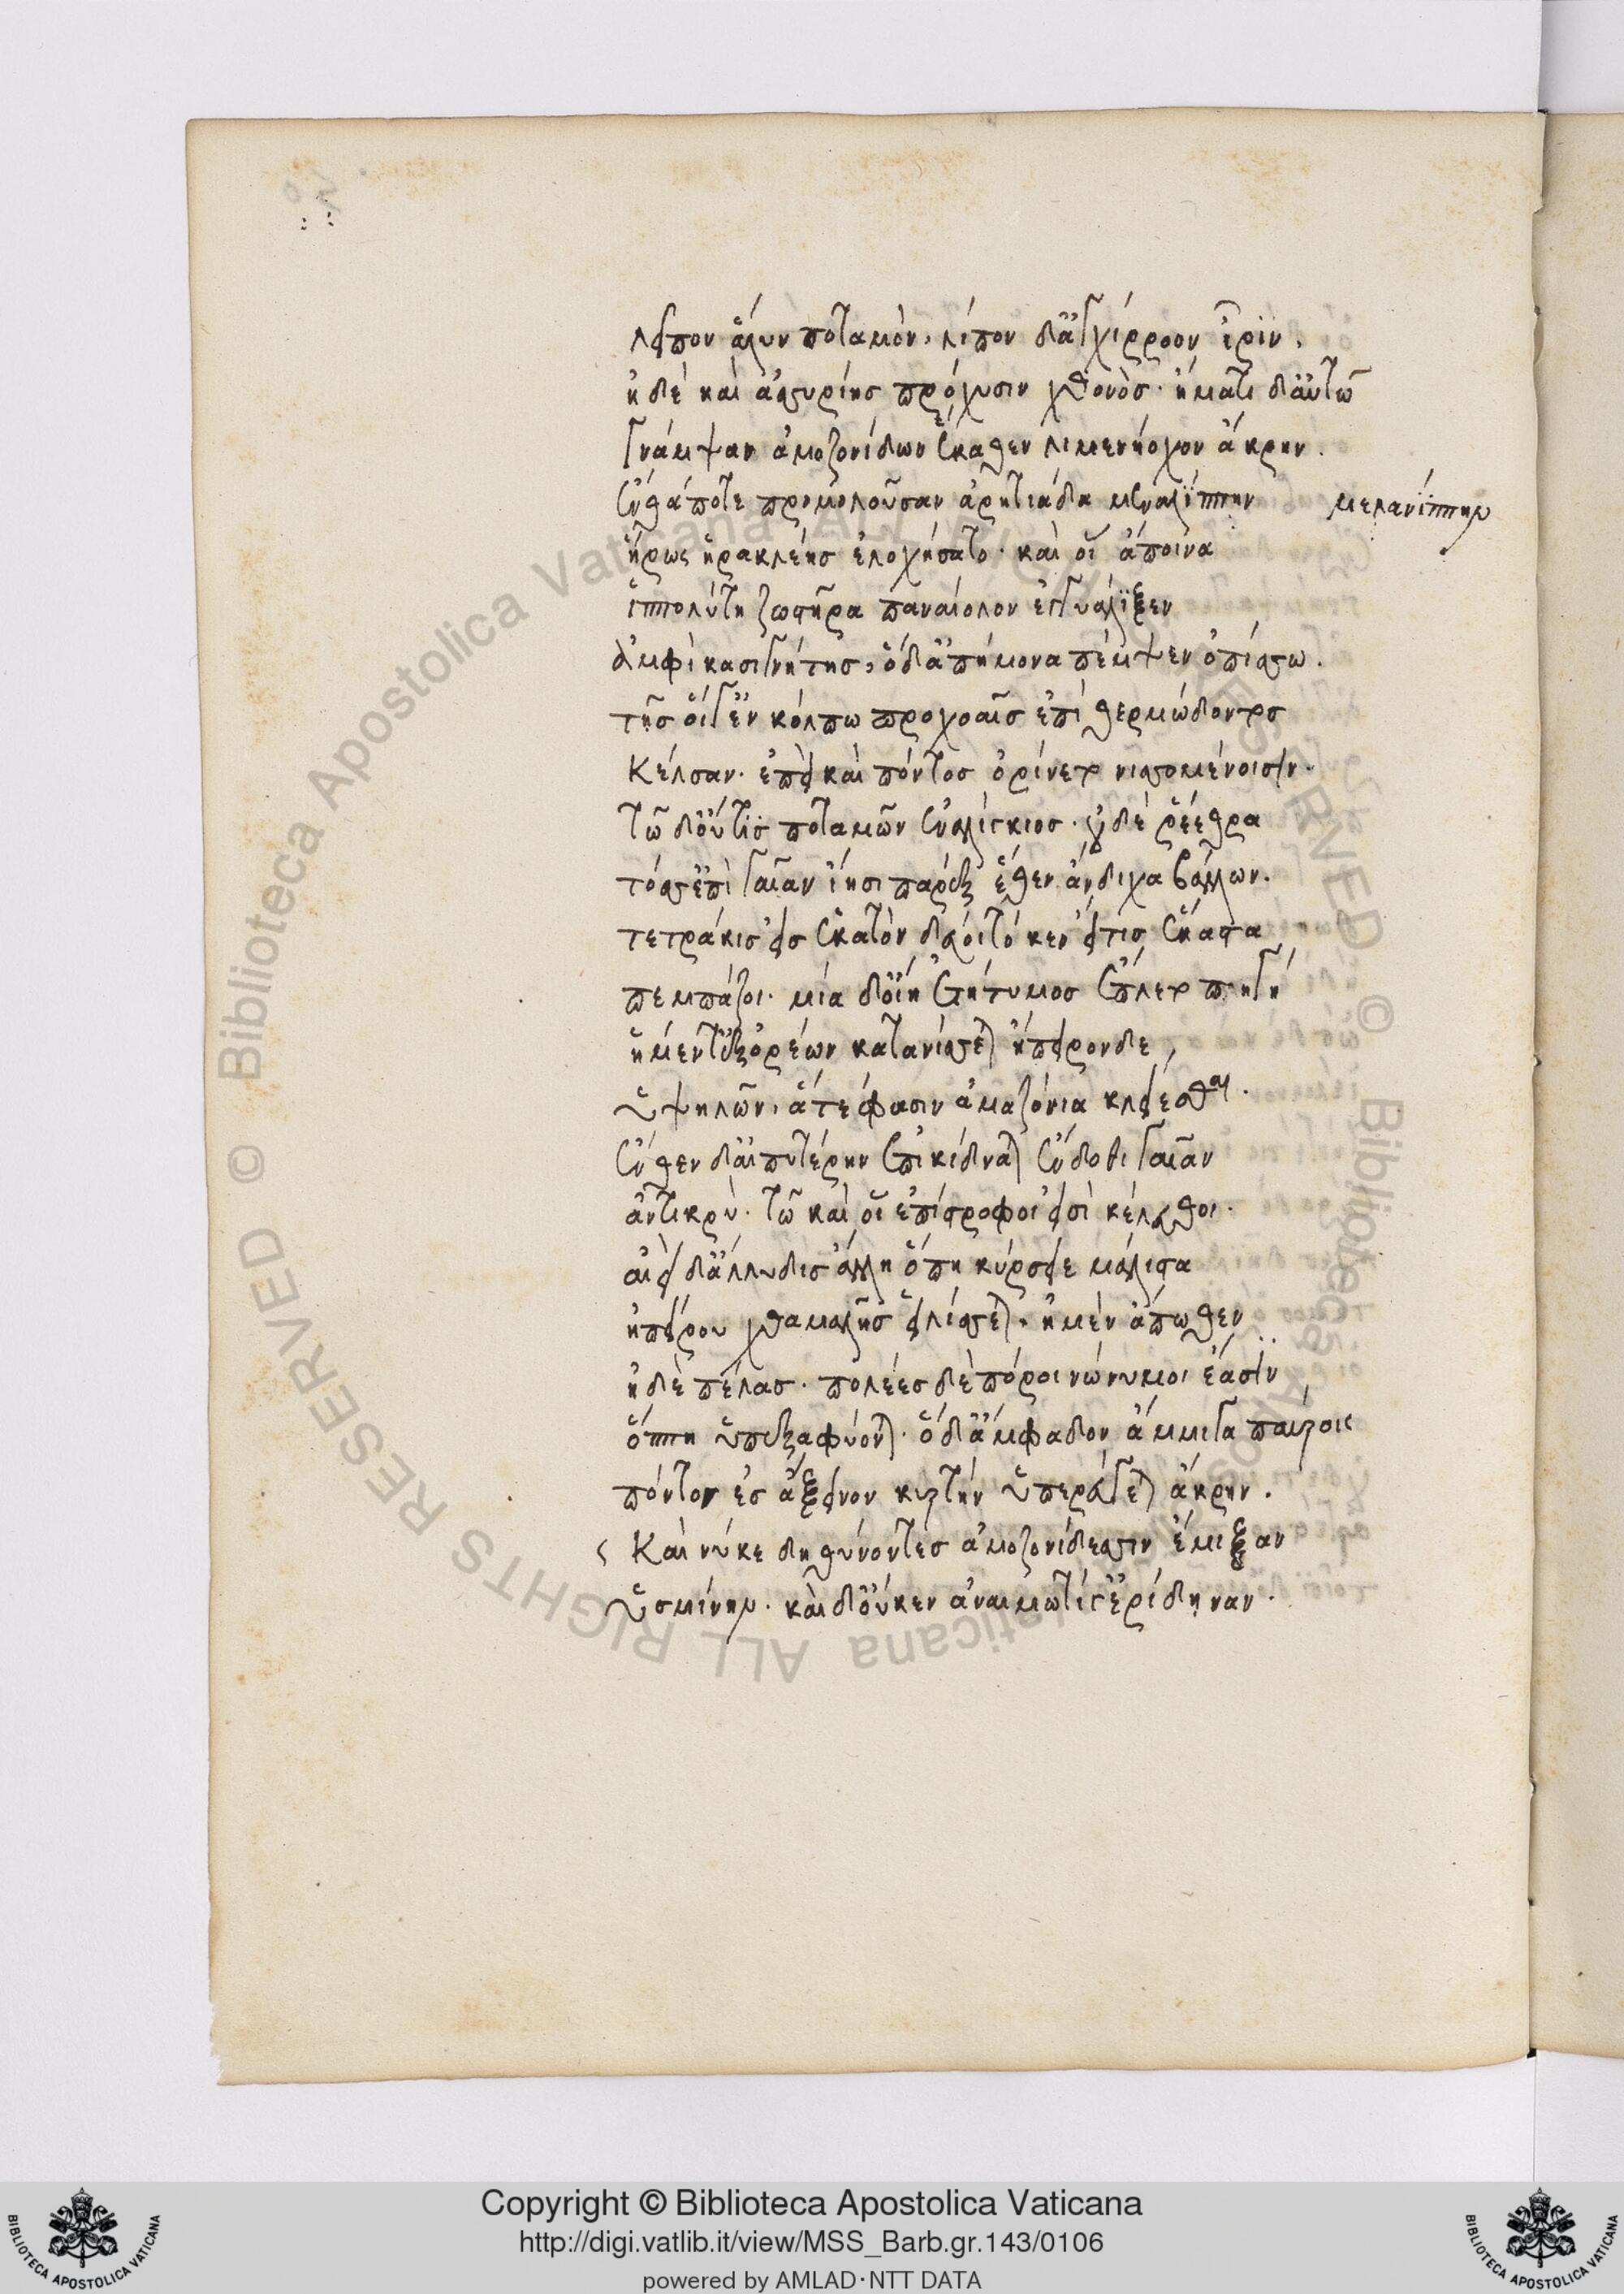 λεῖπον ἅλυν ποταμὸν, λίπον δἀγχίρροον ἶριν,
ἠδὲ καὶ ἀσσυρίης πρόχυσιν χθονὸς. ἤματι δαὐτῶ
γνάμψαν ἀμαζονίδων ἕκαθεν λιμενήοχον ἄκρην.
ἔνθά ποτε προμολοῦσαν ἀρητιάδα μεναλίππην μελανίππην
ἥρως ἡρακλέης ἐλοχήσατο. καὶ οἷ ἄποινα
ἱππολύτη ζωστῆρα παναίολον ἐγγυάλιξεν
ἀμφὶ κασιγνήτης, ὁ δἀπήμονα πέμψεν ὀπίσσω.
τῆς οἵγ ἐν κόλπω προχοαῖς ἐπὶ θερμώδοντος
κέλσαν. ἐπεὶ καὶ πόντος ὀρίνετο νισσομένοισιν.
τῶ δοὔτις ποταμῶν ἐναλίγκιος. οὐδὲ ῥέεθρα
τόσσ ἐπὶ γαῖαν ἵησι παρὲξ ἕθεν ἄνδιχα βάλλων.
τετράκις εἰς ἑκατὸν δεύοιτό κεν εἴ τις ἕκαστα
πεμπάζοι. μία δοἴη ἐτήτυμος ἔπλετο πηγή
ἡ μέν τ ἐξ ὀρέων κατανίσσεται ἤπειρον δε,
ὑψηλῶν, ἅ τέ φασιν ἀμαζόνια κλείεσθαι.
ἔνθεν δαἰπυτέρην ἐπικίδναται ἔνδοθι γαῖαν
ἀντικρὺ. τῶ καὶ οἷ ἐπίστροφοι εἰσὶ κέλευθοι.
αἰεὶ δἄλλυδις ἄλλη ὅπη κύρσειε μάλιστα
ἠπείρου χθαμαλῆς εἱλίσσεται. ἡ μὲν ἄπωθεν
ἡ δὲ πέλας. πολέες δὲ πόροι νώνυμοι ἔασιν
ὅππη ὑπεξαφύονται. ὁ δἀμφαδὸν ἄμμιγα παύροις
πόντον ἐς ἄξεινον κυρτὴν ὑπερεύγεται ἄκρην.
Καὶ νύ κε δηθύνοντες ἀμαζονίδεσσιν ἔμιξαν
ὑσμίνην. καὶ δοὔ κεν ἀναιμωτί γ ἐρίδηναν.
Copyright © Biblioteca Apostolica Vaticana
http://digi.vatlib.it/view/MSS_Barb.gr.143/0106
powered by AMLAD·NTT DATA